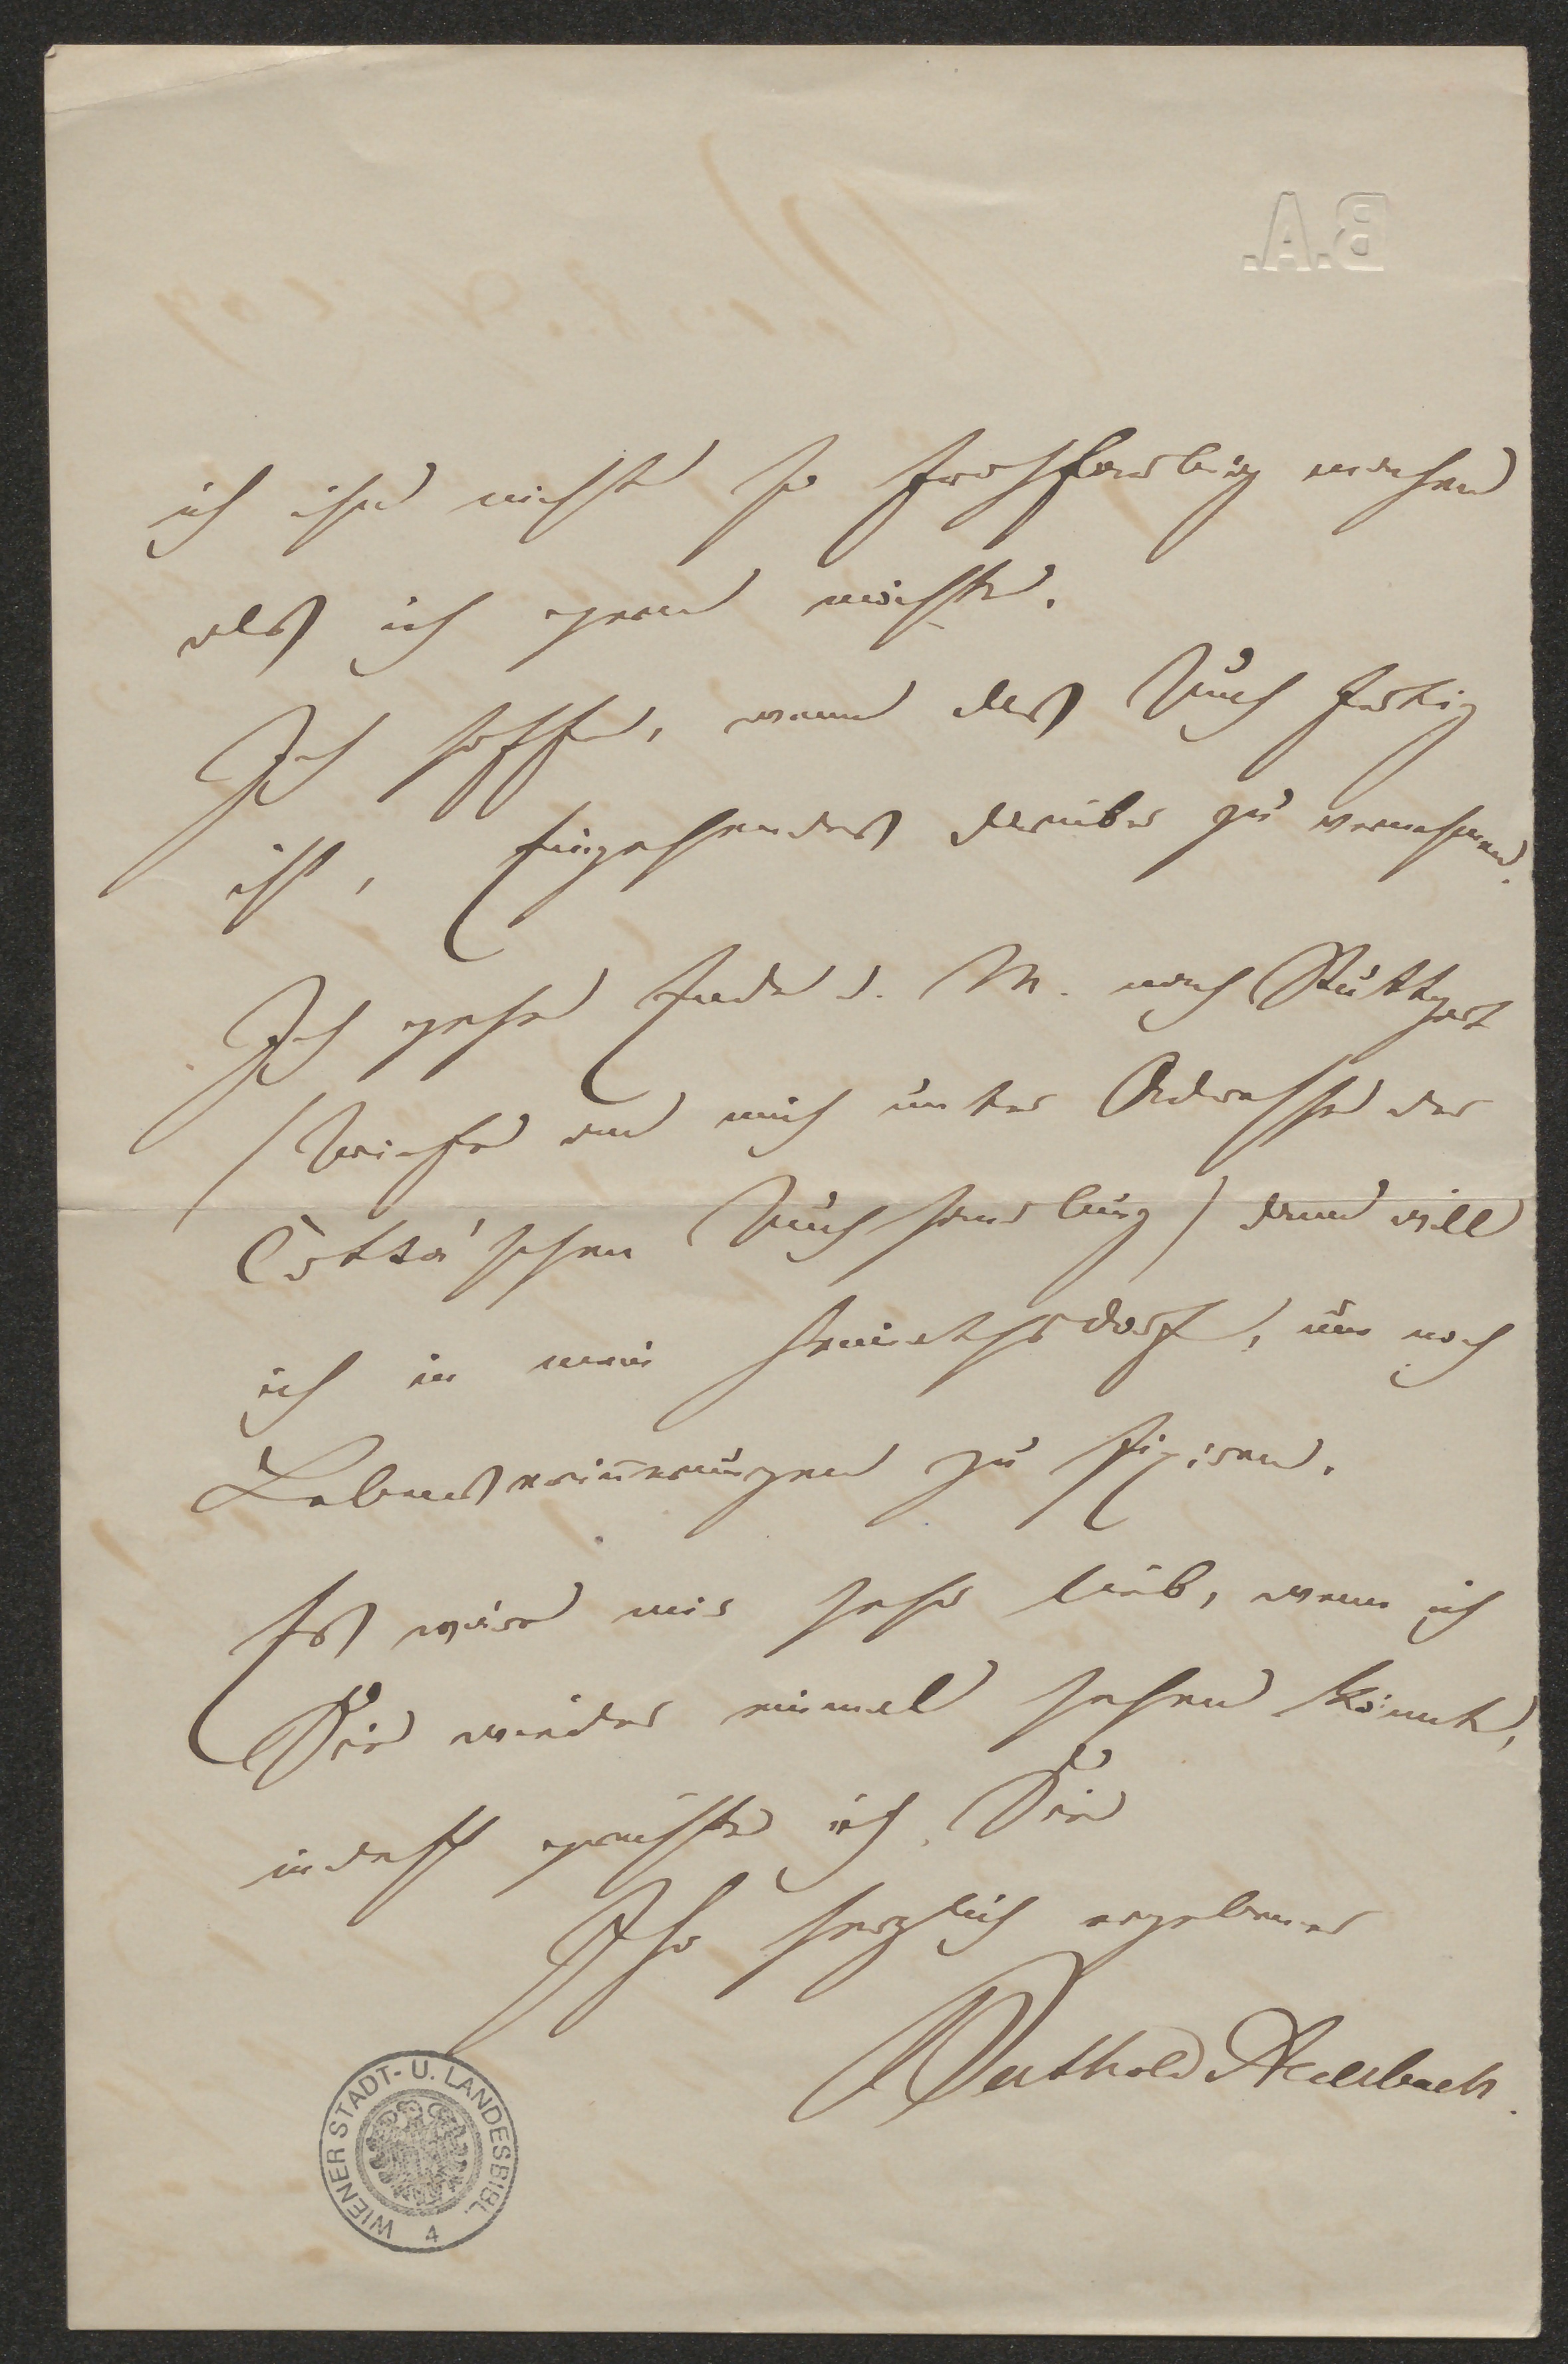 B.A.
ich ihn nicht so frohfarbig machen
als ich gern möchte.
Ich hoffe, wenn das Buch fertig
ist, Eingehendes darüber zu vernehmen.
Ich gehe Ende d. M. nach Stuttgart
(Briefe an mich unter Adresse der
Cotta'schen Buchhandlung) dann will
ich in mein Heimathsdorf, um noch
Lebenserinnerungen zu fixiren.
Es wäre mir sehr lieb, wenn ich
Sie wieder einmal sehen könnte,
indeß grüßte ich Sie
Ihr herzlich ergebener
Berthold Auerbach.
WIENER STADT- U. LANDESBIBL.
4